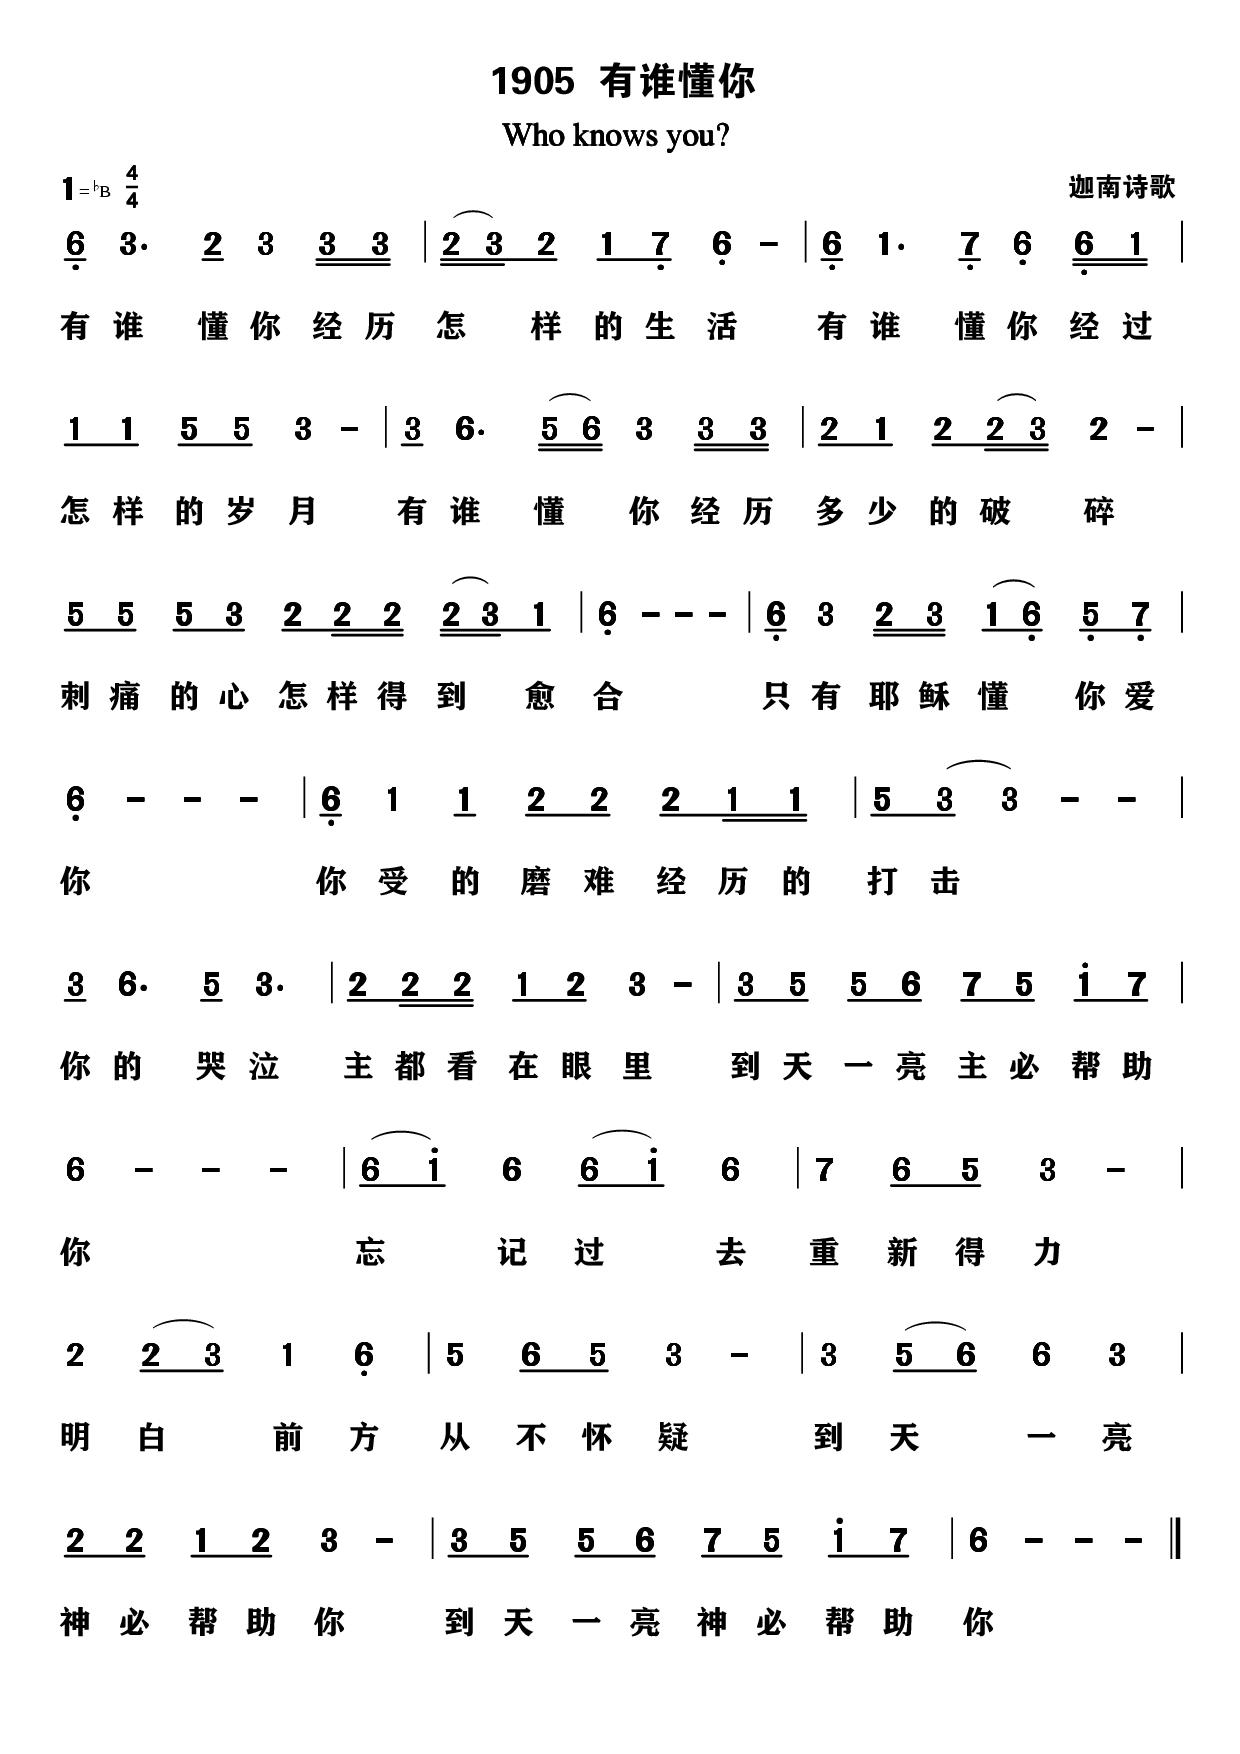 1905 有谁懂你
Who knows you?
1=♭B 4/4 迦南诗歌
6 3. 2 3 3 3 | 2 3 2 1 7 6 - | 6 1. 7 6 6 1 |
有谁 懂你经历怎 样的生活 有谁 懂你经过
1 1 5 5 3 - | 3 6. 5 6 3 3 3 | 2 1 2 2 3 2 - |
怎样的岁月 有谁 懂 你经历多少的破 碎
5 5 5 3 2 2 2 2 3 1 | 6 - - - | 6 3 2 3 1 6 5 7 |
刺痛的心怎样得到 愈合 只有耶稣懂 你爱
6 - - - | 6 1 1 2 2 2 1 1 | 5 3 3 - - |
你 你受的磨难经历的打击
3 6. 5 3. | 2 2 2 1 2 3 - | 3 5 5 6 7 5 i 7 |
你的 哭泣 主都看在眼里 到天一亮主必帮助
6 - - - | 6 i 6 6 i 6 | 7 6 5 3 - |
你 忘 记过 去 重新得力
2 2 3 1 6 | 5 6 5 3 - | 3 5 6 6 3 |
明白 前方 从不怀疑 到天 一亮
2 2 1 2 3 - | 3 5 5 6 7 5 i 7 | 6 - - - ‖
神必帮助你 到天一亮神必帮助 你